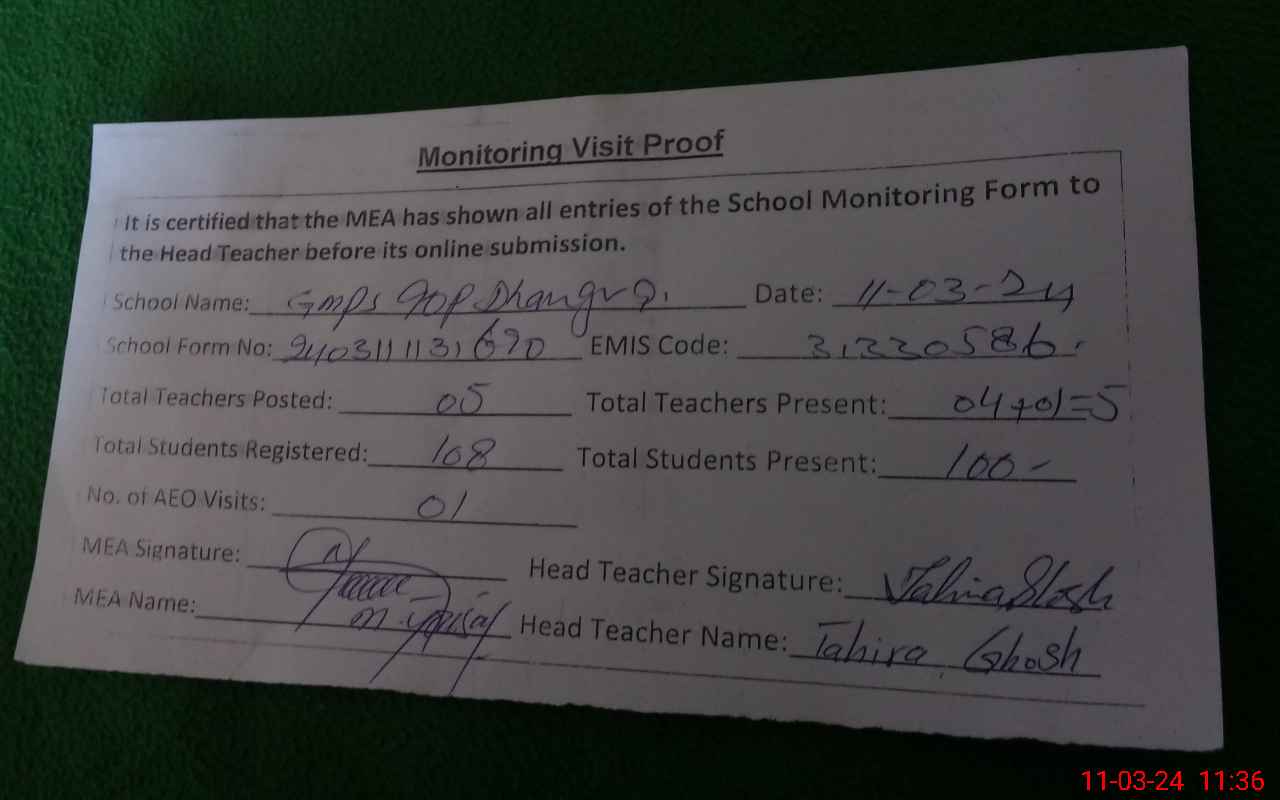 Monitoring Visit Proof
It is certified that the MEA has shown all entries of the School Monitoring Form to
the Head Teacher before its online submission.
School Name: GMPS Date: 11-03-24
School Form No: 2403111131690 EMIS Code: 31330586
Total Teachers Posted: 05 Total Teachers Present: 04+01=5
Total Students Registered: 108 Total Students Present: 100-
No. of AEO Visits: 01
MEA Signature: Head Teacher Signature:
MEA Name: Head Teacher Name: Tahira Ghosh
11-03-24 11:36